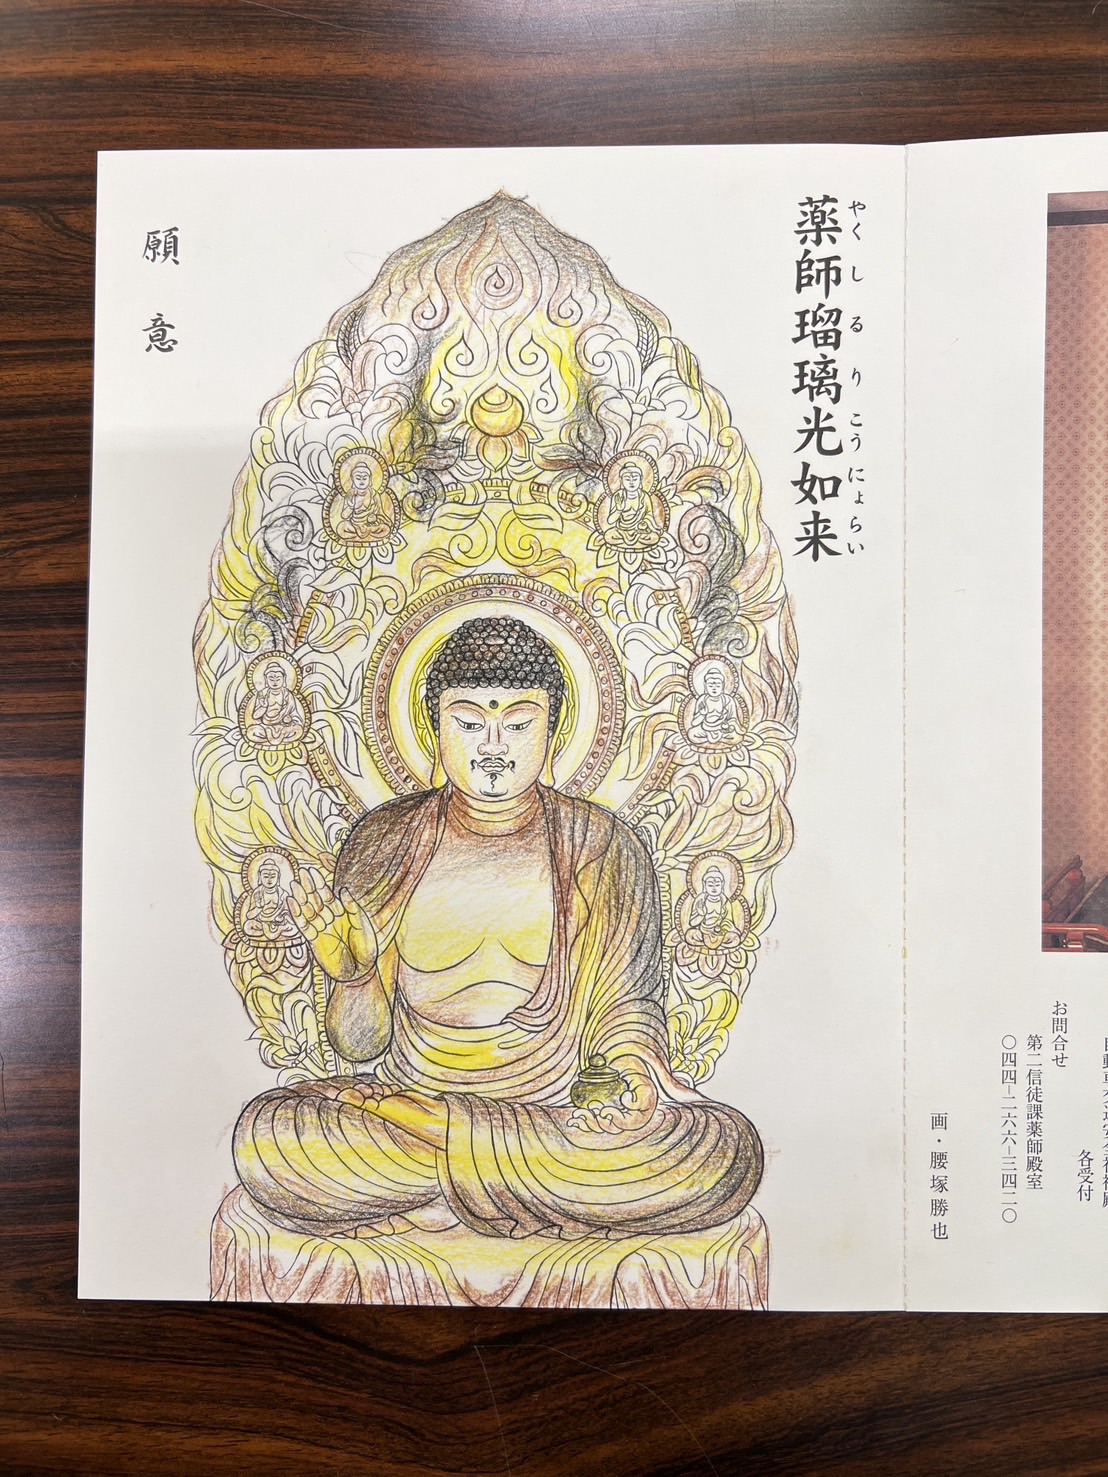 薬師瑠璃光如来
やくしるりこうにょらい
願意
各受付
お問合せ
第二信徒課薬師殿室
〇四四―二六六―三四二〇
画・腰塚勝也